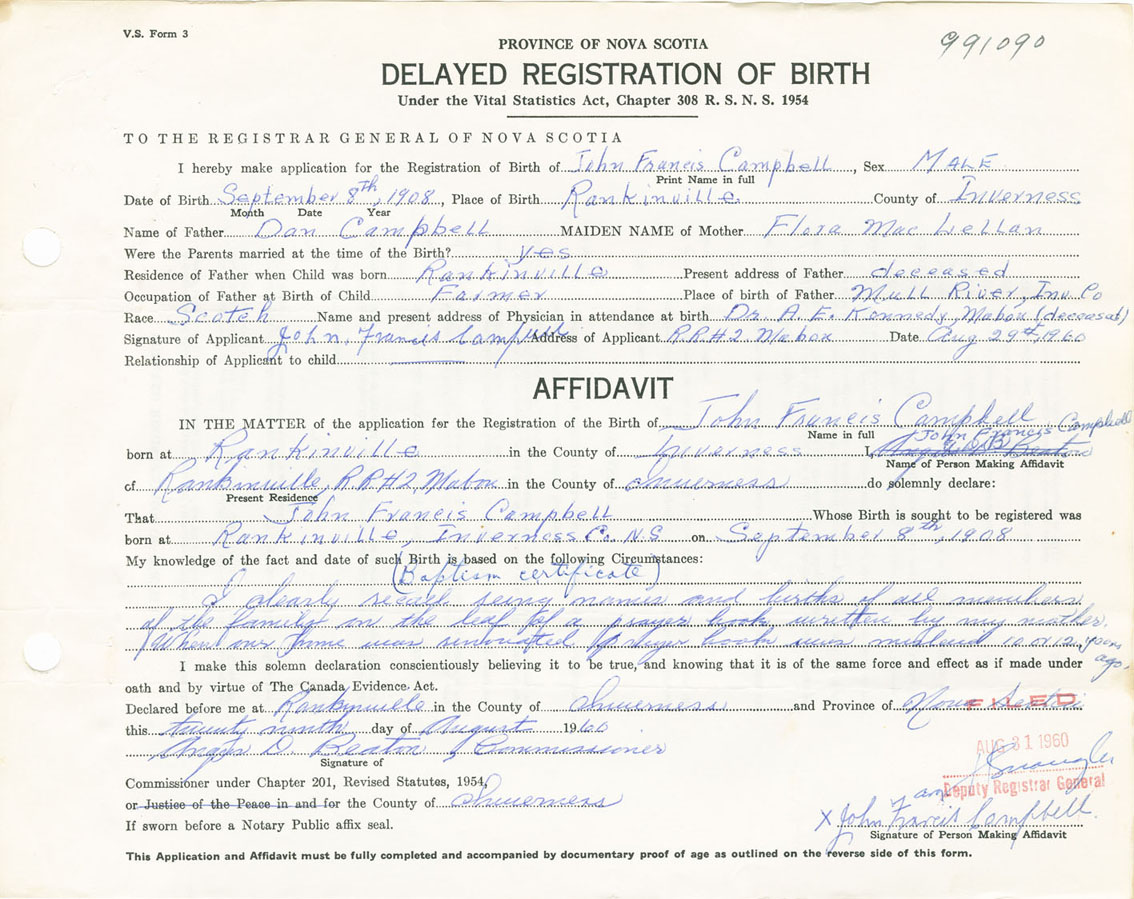 V.S. Form 3
991090
PROVINCE OF NOVA SCOTIA
DELAYED REGISTRATION OF BIRTH
Under the Vital Statistics Act, Chapter 308 R. S. N. S. 1954
TO THE REGISTRAR GENERAL OF NOVA SCOTIA
I hereby make application for the Registration of Birth of John Francis Campbell, Sex MALE
Print Name in full
Date of Birth September 8th, 1908, Place of Birth Rankinville County of Inverness
Month Date Year
Name of Father Dan Campbell MAIDEN NAME of Mother Flora Mac Lellan
Were the Parents married at the time of the Birth? yes
Residence of Father when Child was born Rankinville Present address of Father deceased
Occupation of Father at Birth of Child Farmer Place of birth of Father Mull River, Inv. Co
Race Scotch Name and present address of Physician in attendance at birth Dr. A. E. Kennedy, Mabou (deceased)
Signature of Applicant John Francis Campbell Address of Applicant RR#2 Mabou Date Aug 29th, 1960
Relationship of Applicant to child
AFFIDAVIT
IN THE MATTER of the application for the Registration of the Birth of John Francis Campbell
Name in full John Francis Campbell
born at Rankinville in the County of Inverness I, Angus B Beaton
Name of Person Making Affidavit
of Rankinville, RR#2 Mabou in the County of Inverness do solemnly declare:
Present Residence
That John Francis Campbell Whose Birth is sought to be registered was
born at Rankinville, Inverness Co. N.S on September 8th, 1908
My knowledge of the fact and date of such Birth is based on the following Circumstances:
(Baptism certificate)
I clearly recall seeing names and births of all members
of the family on the leaf of a prayer book, written by my mother.
When our home was renovated prayer book was mislaid 10 or 12 years
ago.
I make this solemn declaration conscientiously believing it to be true, and knowing that it is of the same force and effect as if made under
oath and by virtue of The Canada Evidence Act.
Declared before me at Rankinville in the County of Inverness and Province of Nova Scotia
FILED
this twenty ninth day of August 1960
AUG 31 1960
Angus D Beaton, Commissioner
Signature of
Commissioner under Chapter 201, Revised Statutes, 1954,
Deputy Registrar General
or Justice of the Peace in and for the County of Inverness
X John Francis Campbell.
If sworn before a Notary Public affix seal.
Signature of Person Making Affidavit
This Application and Affidavit must be fully completed and accompanied by documentary proof of age as outlined on the reverse side of this form.